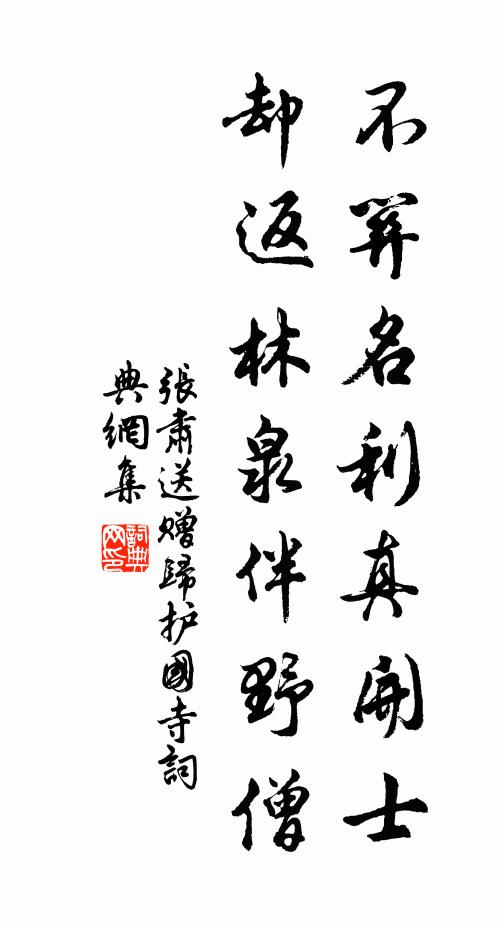 不筭名利真開士
却返林泉伴野僧
張肅送赠歸护國寺詞
典網集
詞典
网印